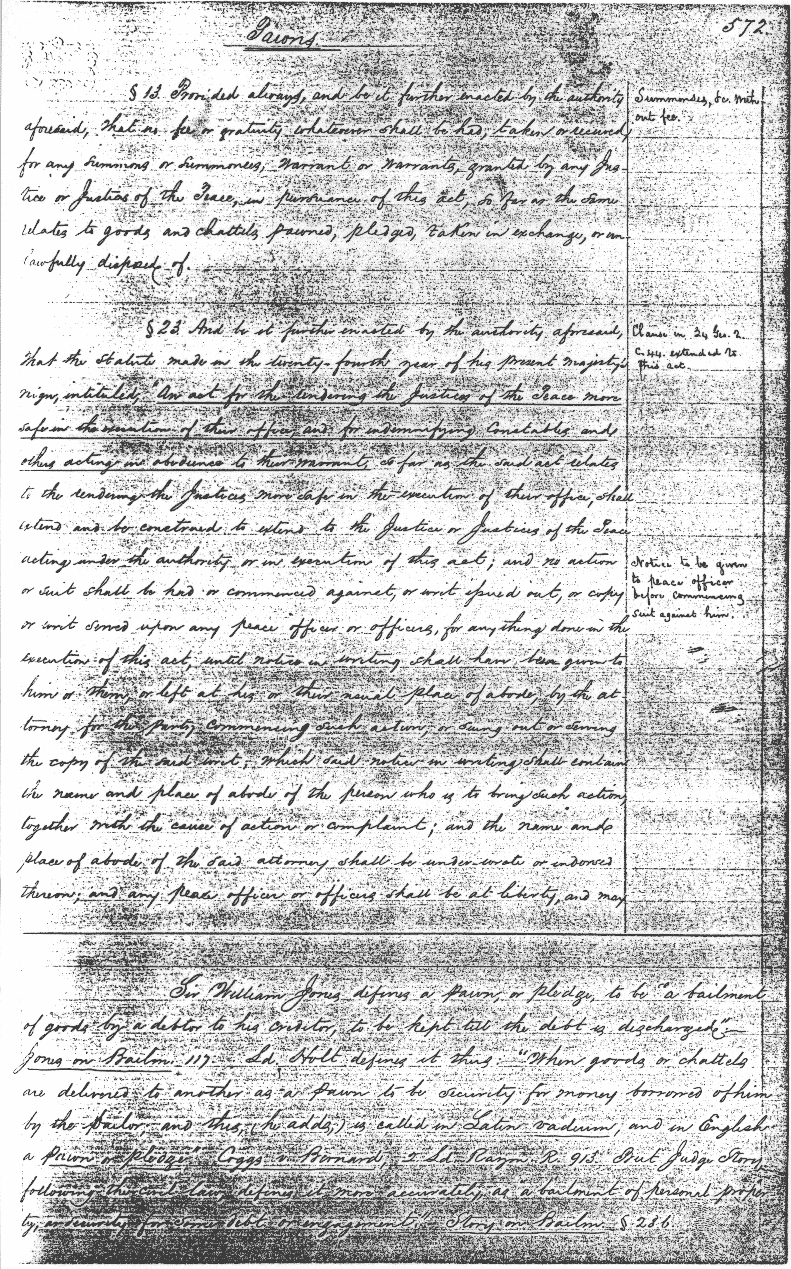 Pawns.
572
§ 13. Provided always, and be it further enacted by the authority
aforesaid, That no fee or gratuity whatsoever shall be had, taken or received,
for any summons or summonses, warrant or warrants, granted by any Jus-
tice or Justices of the Peace, in pursuance of this act, so far as the same
relates to goods and chattels pawned, pledged, taken in exchange, or un-
lawfully disposed of.
Summonses, &c. with
out fee.
§ 23. And be it further enacted by the authority aforesaid,
That the statute made in the twenty-fourth year of his present majesty's
reign, intituled, "An act for the rendering the Justices of the Peace more
safe in the execution of their office, and for indemnifying Constables and
others acting in obedience to their warrants, so far as the said act relates
to the rendering the Justices more safe in the execution of their office, shall
extend and be construed to extend to the Justice or Justices of the Peace
acting under the authority or in execution of this act; and no action
or suit shall be had or commenced against, or writ sued out, or copy
or writ served upon any peace officer or officers, for any thing done in the
execution of this act, until notice in writing shall have been given to
him or them, or left at his or their usual place of abode, by the at
torney for the party commencing such action, or suing out or serving
the copy of the said writ; which said notice in writing shall contain
the name and place of abode of the person who is to bring such action,
together with the cause of action or complaint; and the name and
place of abode of the said attorney shall be under-wrote or indorsed
thereon; and any peace officer or officers shall be at liberty, and may
Clause in 24 Geo. 2.
C. 44. extended to
this act.
Notice to be given
to peace officer
before commencing
suit against him.
Sir William Jones defines a pawn, or pledge, to be "a bailment
of goods by a debtor to his creditor, to be kept till the debt is discharged".
Jones on Bailm. 117. Ld. Holt defines it thus: "When goods or chattels
are delivered to another as a pawn to be security for money borrowed of him
by the bailor and this, (he adds,) is called in Latin vadium, and in English
a pawn or pledge" Coggs v. Bernard, 2 Ld. Raym. R. 913. But Judge Story,
following the civil law, defines it more accurately, as "a bailment of personal proper-
ty, as security for some debt or engagement." Story on Bailm. § 286